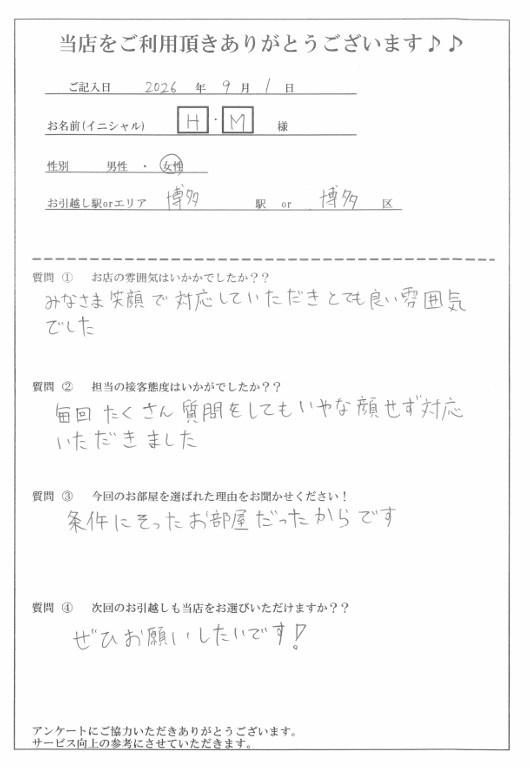 当店をご利用頂きありがとうございます♪♪
ご記入日 2026 年 9 月 1 日
お名前(イニシャル) H・M 様
性別 男性 ・ 女性
お引越し駅orエリア 博多 駅 or 博多 区
質問 ① お店の雰囲気はいかかでしたか??
みなさま笑顔で対応していただきとても良い雰囲気
でした
質問 ② 担当の接客態度はいかがでしたか??
毎回たくさん質問をしてもいやな顔せず対応
いただきました
質問 ③ 今回のお部屋を選ばれた理由をお聞かせください!
条件にそったお部屋だったからです
質問 ④ 次回のお引越しも当店をお選びいただけますか??
ぜひお願いしたいです!
アンケートにご協力いただきありがとうございます。
サービス向上の参考にさせていただきます。